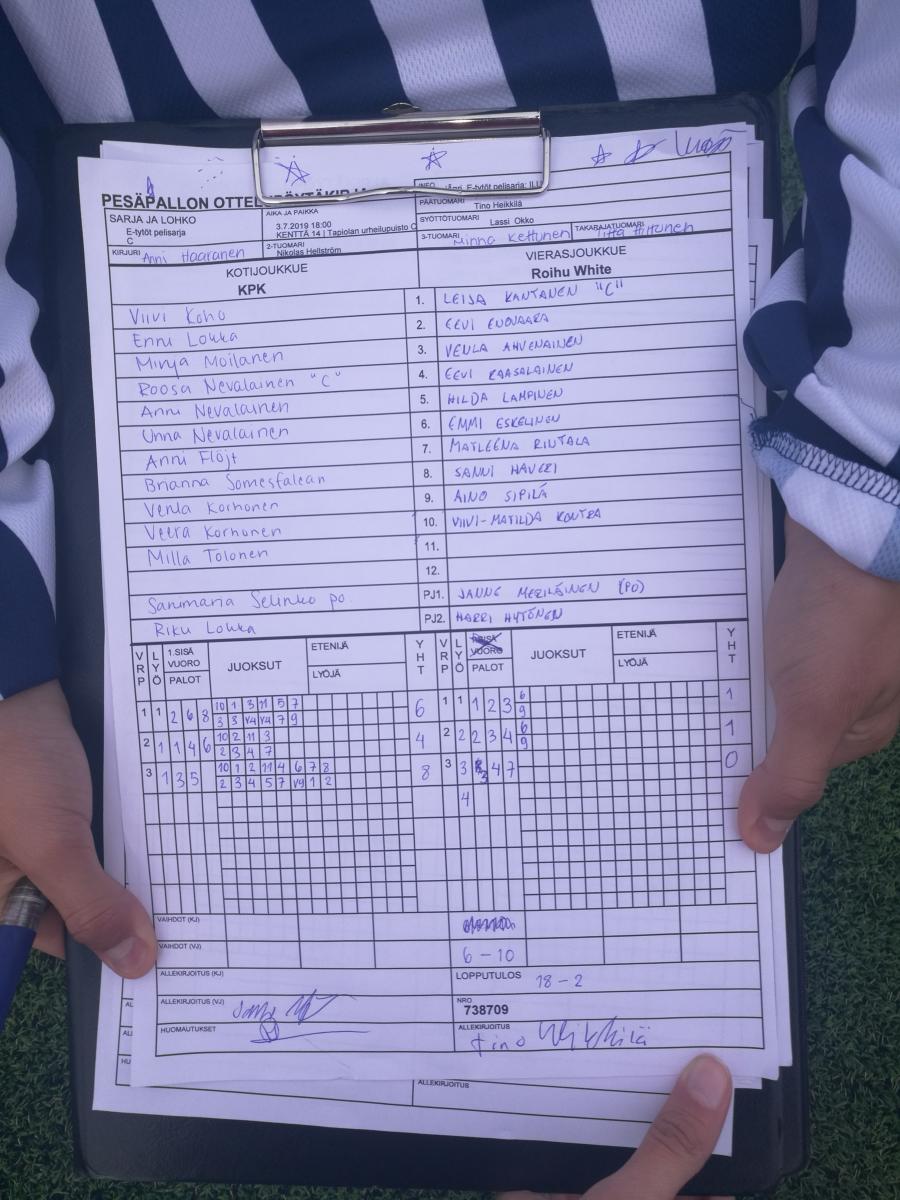 PESÄPALLON
INFO
E-tytöt pelisarja:
SARJA JA LOHKO
E-tytöt pelisarja
C
AIKA JA PAIKKA
3.7.2019 18:00
KENTTÄ 14 | Tapiolan urheilupuisto C
PÄÄTUOMARI Tino Heikkilä
SYÖTTÖTUOMARI Lassi Okko
KIRJURI Anni Haaranen
2-TUOMARI
Nikolas Hellström
3-TUOMARI Minna Kettunen
TAKARAJATUOMARI
KOTIJOUKKUE
KPK
VIERASJOUKKUE
Roihu White
Viivi Koho 1. LEIJA KANTANEN "C"
Enni Lokka 2. EEVI
Minja Moilanen 3. VENLA AHVENAINEN
Roosa Nevalainen "C" 4. EEVI KAASALAINEN
Anni Nevalainen 5. HILDA LAMPINEN
Unna Nevalainen 6. EMMI ESKELINEN
Anni Flöjt 7. MATLEENA RINTALA
Brianna Somesfalean 8. SANNI
Venla Korhonen 9. AINO SIPILÄ
Veera Korhonen 10. VIIVI-MATILDA KONTRA
Milla Tolonen 11.
12.
Sanmaria Selinko po. PJ1. JANNE MERILÄINEN (PO)
Riku Lokka PJ2. HARRI HYTÖNEN
VRP LYÖ 1.SISÄ VUORO PALOT JUOKSUT ETENIJÄ LYÖJÄ YHT VRP LYÖ PALOT JUOKSUT ETENIJÄ LYÖJÄ YHT
1 1 2 6 8 10 1 3 11 5 7 6 1 1 1 2 3 6 1
3 3 V4 V4 7 9 9
2 1 1 4 6 10 2 11 3 4 2 2 2 3 4 6 1
2 3 4 7 9
3 1 3 5 10 1 2 11 4 6 7 8 8 3 3 3 4 7 0
2 3 4 5 7 V9 1 2
4
VAIHDOT (KJ)
VAIHDOT (VJ) 6 - 10
ALLEKIRJOITUS (KJ) LOPPUTULOS 18 - 2
ALLEKIRJOITUS (VJ) NRO
738709
HUOMAUTUKSET ALLEKIRJOITUS
Tino Heikkilä
ALLEKIRJOITUS